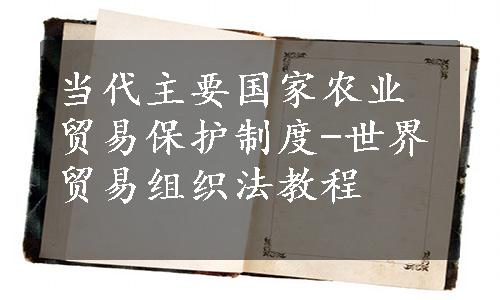 当代主要国家农业
贸易保护制度-世界
贸易组织法教程